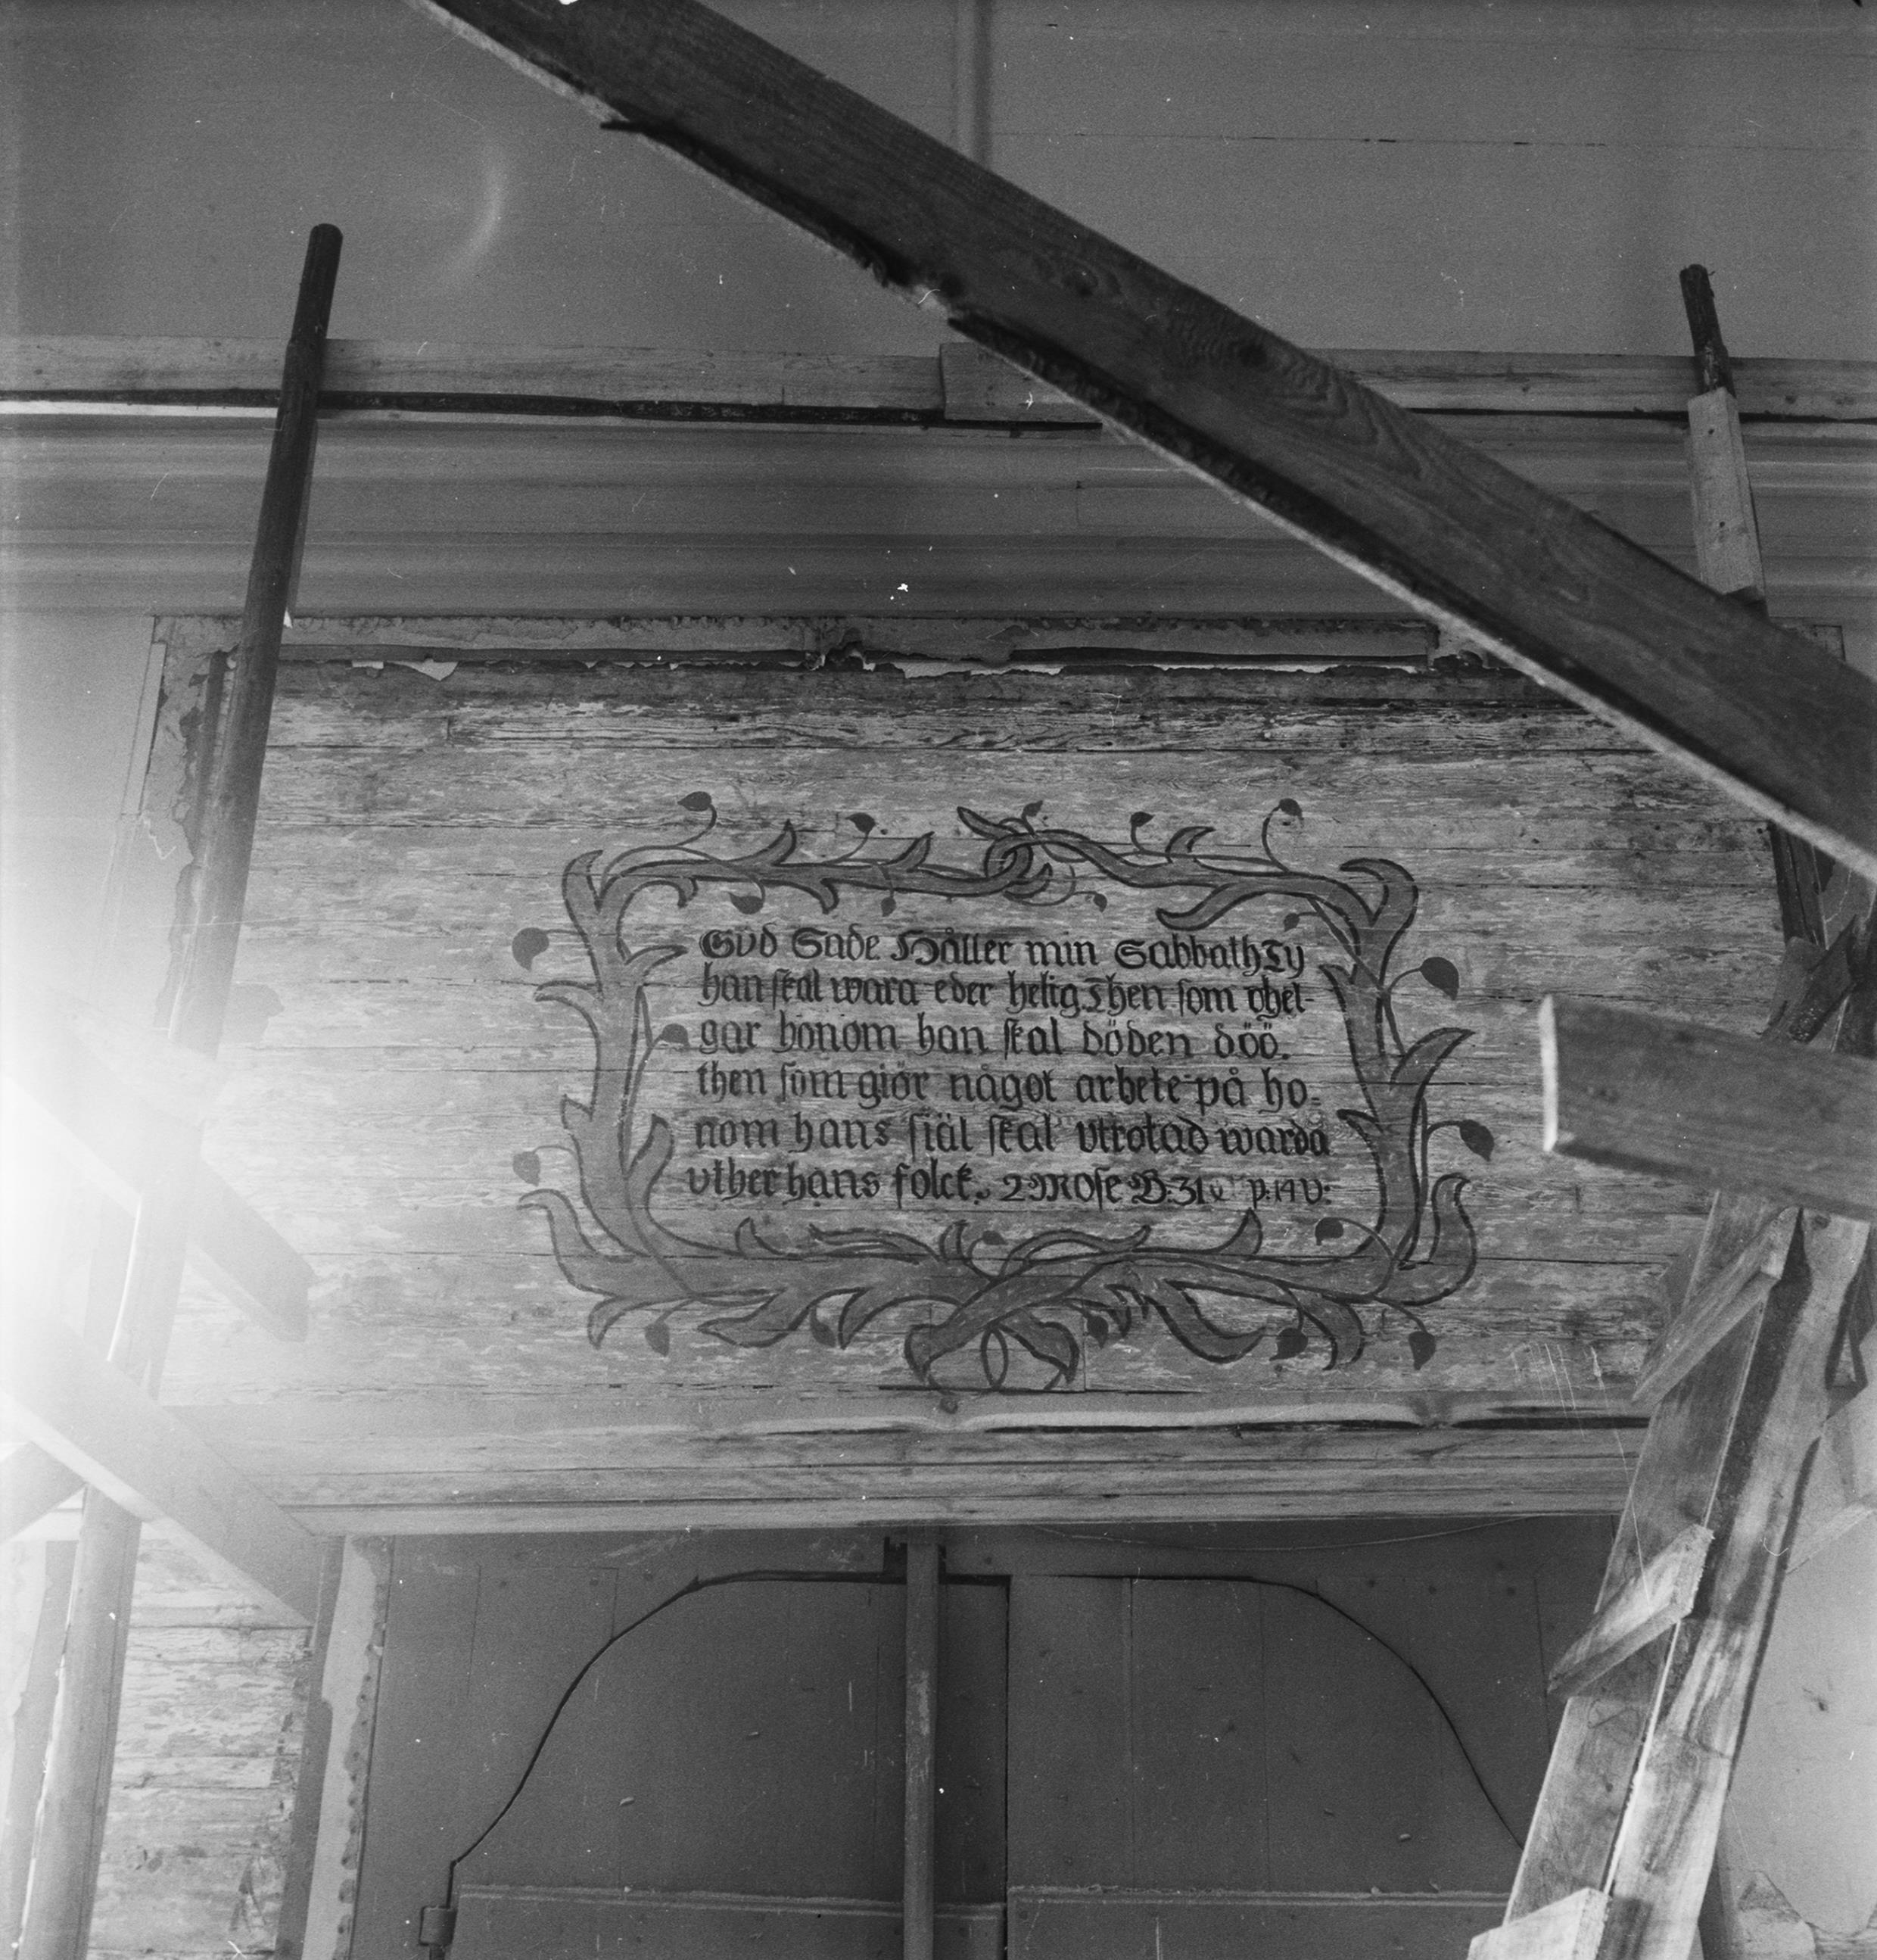 Gud Sade Håller min Sabbath Ty
han skal wara eder helig. Then som ohel-
gar honom han skal döden döö.
then som giör något arbete på ho-
nom hans siäl skal vtrotad warda
vther hans folck. 2 Mose B: 31 p: 14 v: